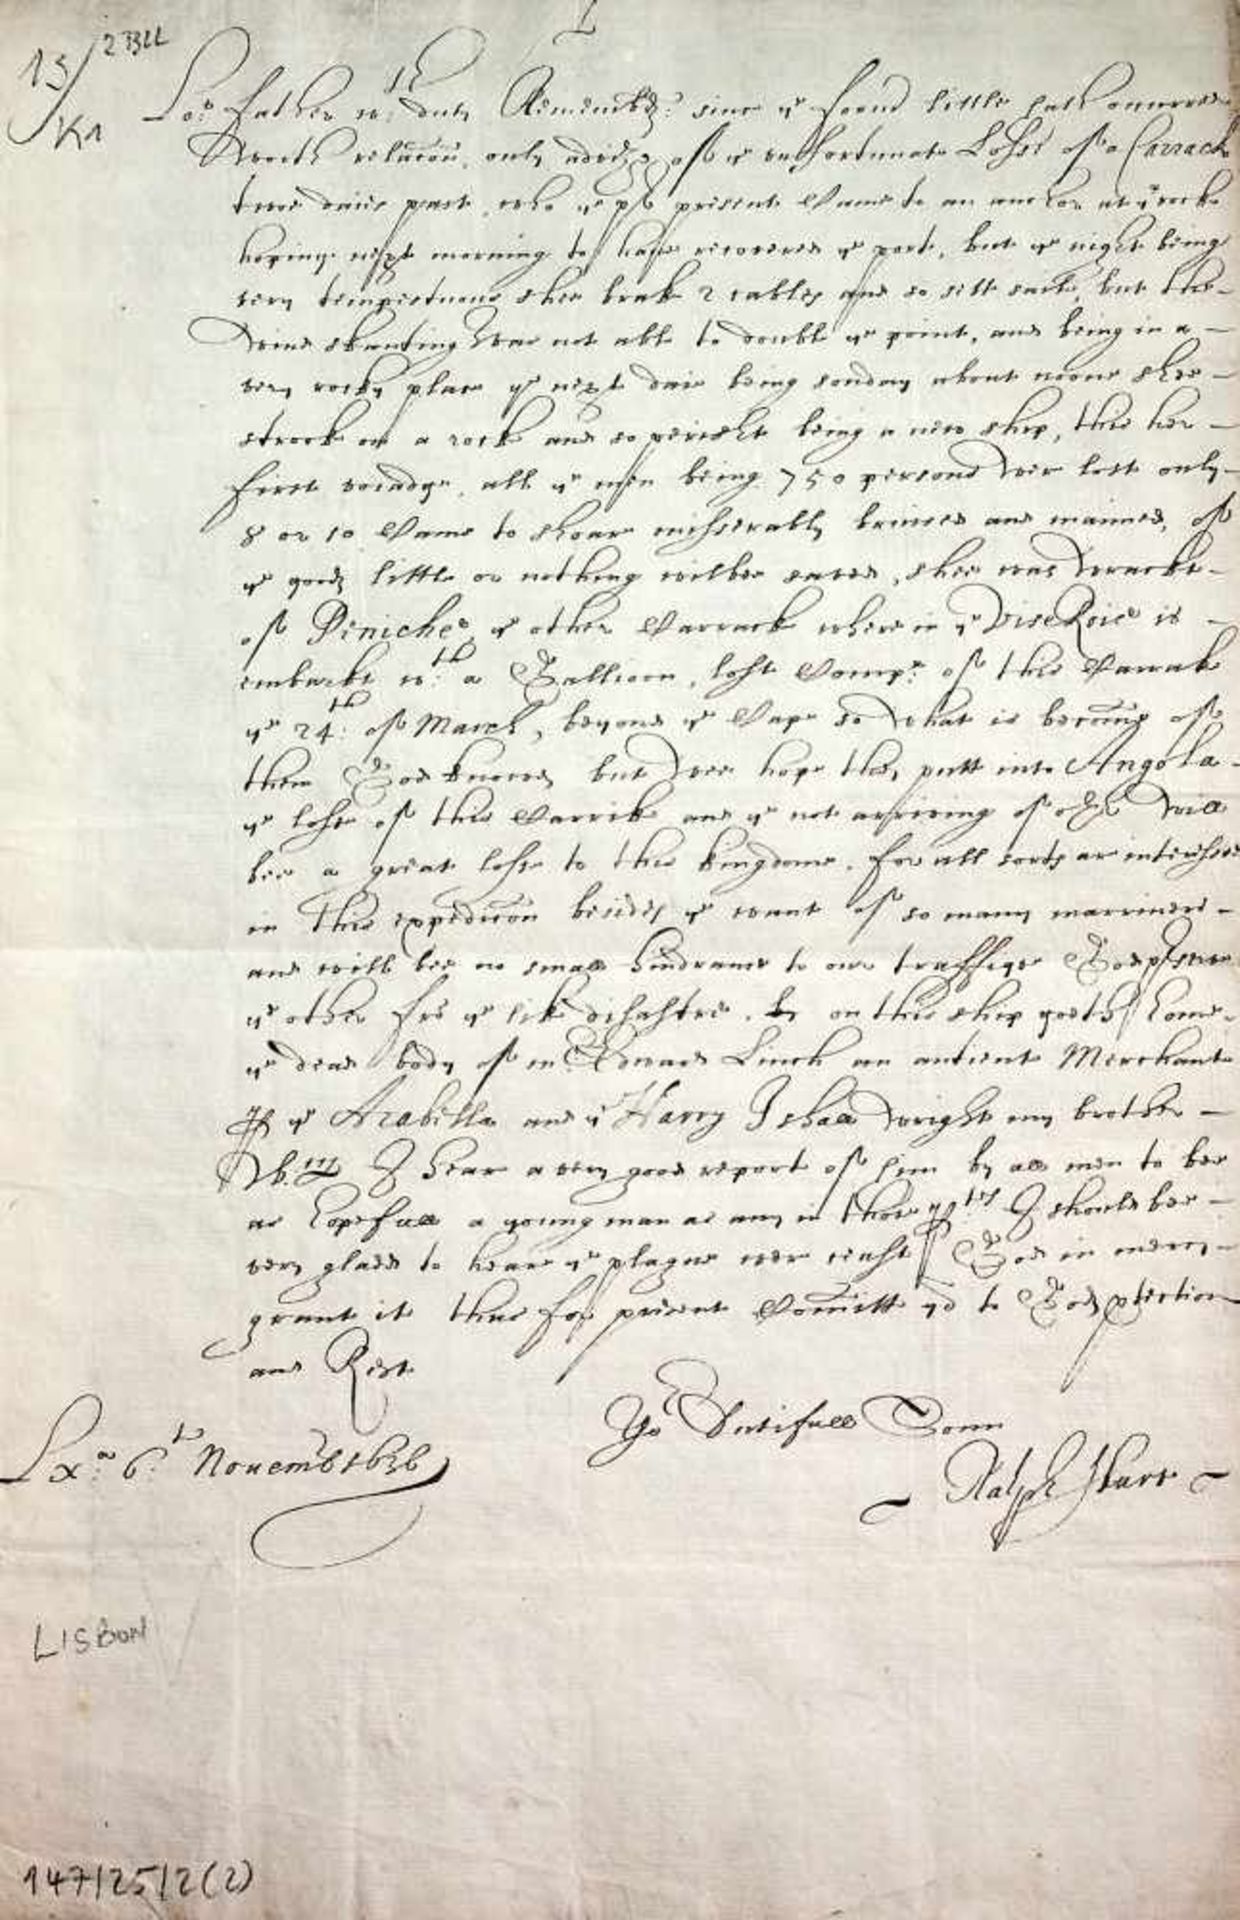 13/2BLL
K1
Lo: Father wth: duty Rememb: sinc ye formr little hath occurred
worth relacon, only advize of ye unfortunate Losse of a Carrack
twoe daies past, who ye present Came to an anchor at ye rock
hoping next morning to have recovered ye port, but ye night being
very tempestuous shee brak 2 cables and so sett saile, but the
wind skanting was not able to doubl ye point, and being in a
very rocky place ye next daie being sonday about noone shee
strook on a rock and so perisht being a new ship, this her
first voiadge, all ye men being 750 persons wer lost only
8 or 10 Came to shoar misserably bruised and maimed, of
ye goods little or nothing wilbee saved, shee was wrackt
of Peniche, ye other Carrack wherein ye Vise Roie is
embarkt wth: a Gallioon, lost Compa: of this Carrak
ye 24th: of March, beyond ye Cape so what is becomg of
them God knowes but wee hope they putt into Angola
ye losse of this Carrik and ye not arriving of othr will
bee a great losse to this kingdome, for all sorts ar interessed
in this expedicon besides ye want of so many marriners
and will bee no small hindrance to our traffique God pserve
ye other frô ye like disastre. on this ship goeth home
ye dead body of mr Edward Linch an antient Merchant
P ye Arabella and ye Harry I shall wright my brother
Wm I hear a very good report of him by all men to bee
as hopefull a young man as any in those pts I should bee
very gladd to hear ye plague wer ceast God in mercy
grant it thus for present Comitt yo to Gods ptection
and Rest
Yor Dutifull Sonn
Lxa: 6th: Novemb 1636
Ralph
LISBON
147/25/2(2)